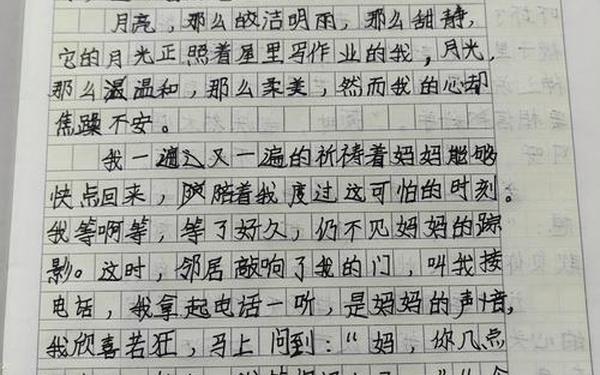 月亮，那么皎洁明雨，那么甜静，
它的月光正照着屋里写作业的我，月光，
那么温温和，那么柔美，然而我的心却
焦躁不安。
我一遍又一遍的祈祷着妈妈能够
快点回来，陪着我度过这可怕的时刻。
我等啊等，等了好久，仍不见妈妈的踪
影。这时，邻居敲响了我的门，叫我接
电话，我拿起电话一听，是妈妈的声音，
我欣喜若狂，马上问到：“妈，你几点